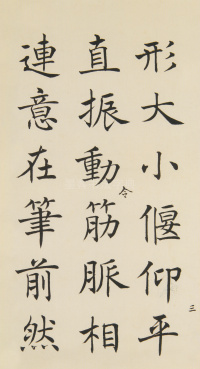 形大小偃仰平
直振動令筋脈相
連意在筆前然
三